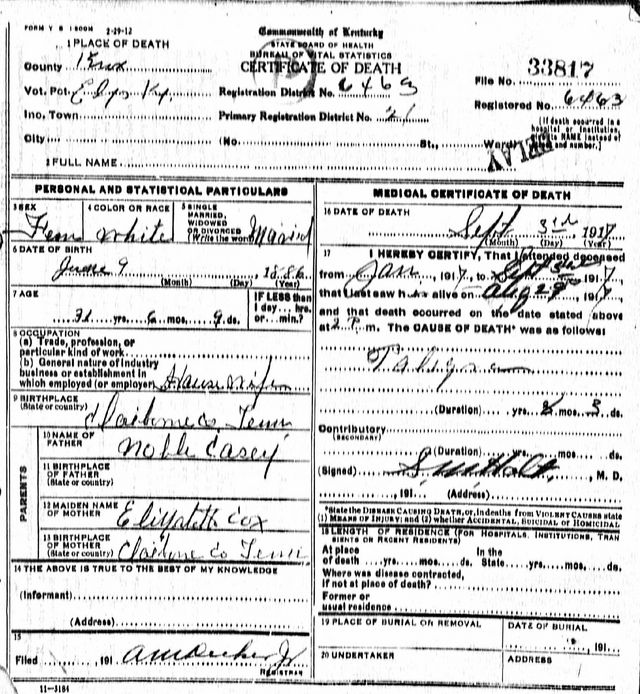 FORM V S 1 500M 2-29-12
1 PLACE OF DEATH
County Knox
Vot. Pct. Elys Ky.
Ino, Town
City
Commonwealth of Kentucky
STATE BOARD OF HEALTH
BUREAU OF VITAL STATISTICS
CERTIFICATE OF DEATH
Registration District No. 6463
Primary Registration District No. 21
(No. St., Ward)
File No. 33817
Registered No. 6463
(If death occurred in a hospital or institution, give its NAME instead of and number.)
2 FULL NAME
PERSONAL AND STATISTICAL PARTICULARS
3 SEX Fem
4 COLOR OR RACE white
5 SINGLE MARRIED, WIDOWED OR DIVORCED (Write the word) Maried
6 DATE OF BIRTH
June 9 1886
(Month) (Day) (Year)
7 AGE
31 yrs. 6 mos. 9 ds.
IF LESS than 1 day... hrs. or... min.?
8 OCCUPATION
(a) Trade, profession, or particular kind of work
(b) General nature of industry business or establishment in which employed (or employer) House Wife
9 BIRTHPLACE
(State or country) Claiborne Co Tenn
PARENTS
10 NAME OF FATHER Noble Casey
11 BIRTHPLACE OF FATHER
(State or country)
12 MAIDEN NAME OF MOTHER Elizabeth Cox
13 BIRTHPLACE OF MOTHER
(State or country) Claiborne Co Tenn
14 THE ABOVE IS TRUE TO THE BEST OF MY KNOWLEDGE
(Informant)
(Address)
15
Filed , 191
REGISTRAR
11-3184
MEDICAL CERTIFICATE OF DEATH
16 DATE OF DEATH
Sept 3rd 1917
(Month) (Day) (Year)
17 I HEREBY CERTIFY, That I attended deceased
from Jan , 1917, to Sept 3rd 1917
that I last saw h alive on Aug 29 1917
and that death occurred on the date stated above
at 2 P. m. The CAUSE OF DEATH* was as follows:
(Duration) yrs. 8 mos. 3 ds.
Contributory
(SECONDARY)
(Duration) yrs. mos. ds.
(Signed) S.M. Holt, M. D.
, 191 (Address)
*State the DISEASE CAUSING DEATH, or, in deaths from VIOLENT CAUSES state
(1) MEANS OF INJURY; and (2) whether ACCIDENTAL, SUICIDAL or HOMICIDAL
18 LENGTH OF RESIDENCE (FOR HOSPITALS, INSTITUTIONS, TRANSIENTS OR RECENT RESIDENTS)
At place of death yrs. mos. ds. In the State yrs. mos. ds.
Where was disease contracted, if not at place of death?
Former or usual residence
19 PLACE OF BURIAL OR REMOVAL
DATE OF BURIAL
, 191
20 UNDERTAKER
ADDRESS